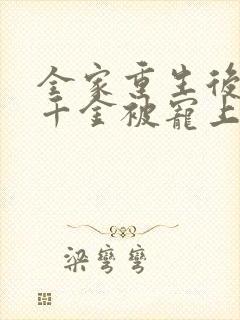 全家重生後
千金被寵上
梁彎彎